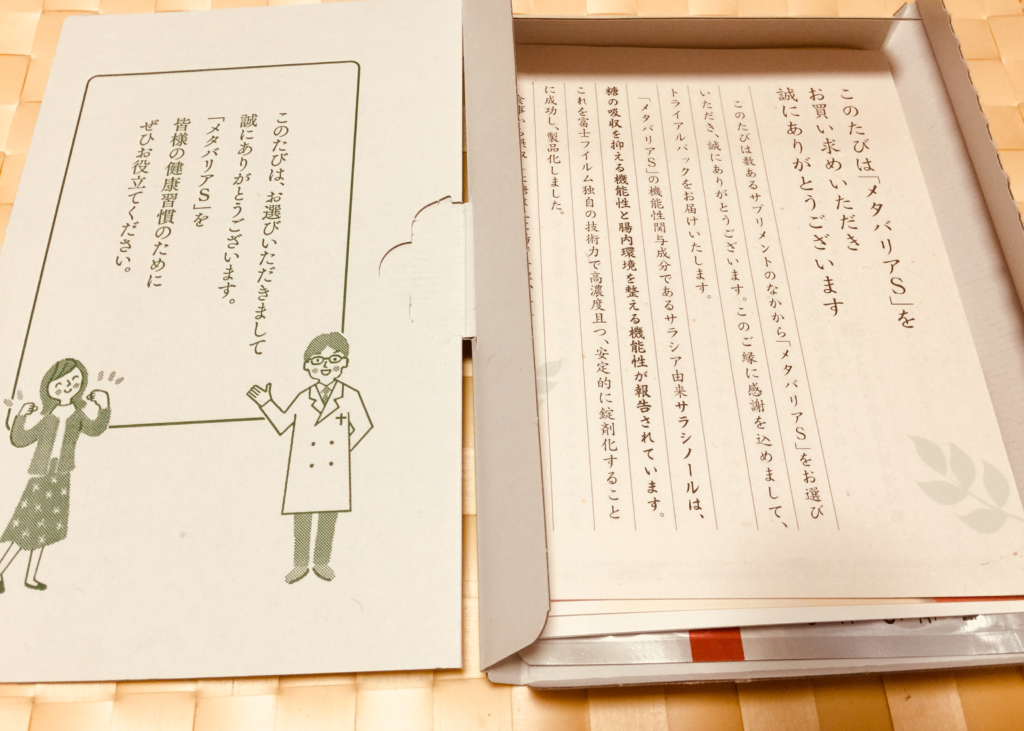 このたびは、お選びいただきまして
誠にありがとうございます。
「メタバリアS」を
皆様の健康習慣のために
ぜひお役立てください。
このたびは「メタバリアS」を
お買い求めいただき
誠にありがとうございます
このたびは数あるサプリメントのなかから「メタバリアS」をお選び
いただき、誠にありがとうございます。このご縁に感謝を込めまして、
トライアルパックをお届けいたします。
「メタバリアS」の機能性関与成分であるサラシア由来サラシノールは、
糖の吸収を抑える機能性と腸内環境を整える機能性が報告されています。
これを富士フイルム独自の技術力で高濃度且つ、安定的に錠剤化すること
に成功し、製品化しました。